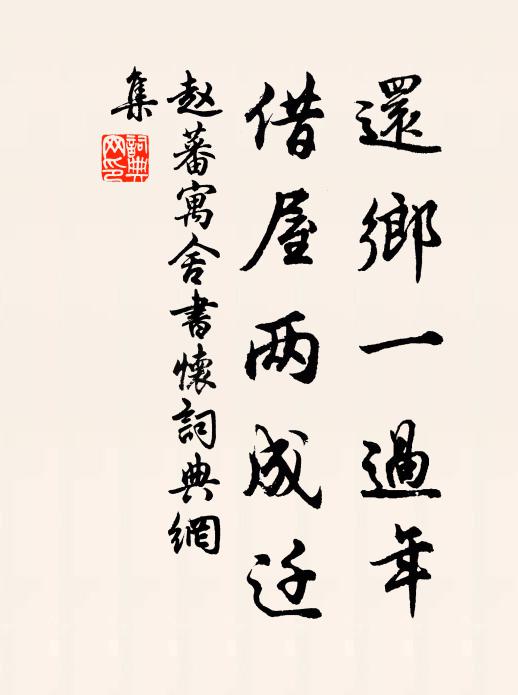 還鄉一過年
借屋两成迁
赵蕃寓舍書懷詞典網
集
詞典
网印